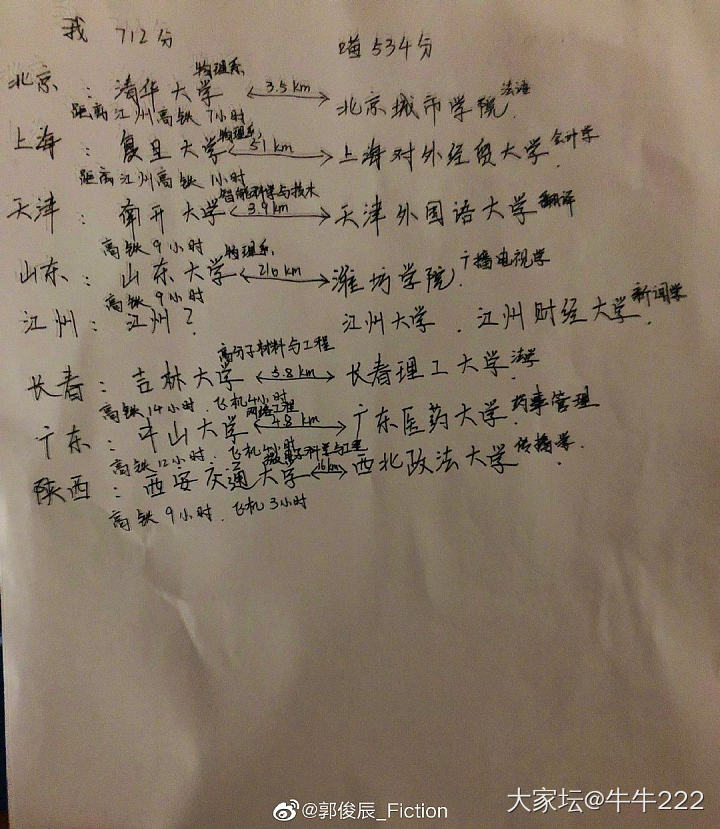 我 712分 喵534分
物理系 法语
北京：清华大学 3.5km 北京城市学院.
距离江州高铁7小时
物理系 会计学
上海：复旦大学 51km 上海对外经贸大学.
距离江州高铁1小时
智能科学与技术
天津：南开大学 3.9km 天津外国语大学 翻译
高铁9小时
物理系 广播电视学
山东：山东大学 216km 潍坊学院.
高铁9小时
江州：江州？ 江州大学．江州财经大学 新闻学.
高分子材料与工程
长春：吉林大学 5.8km 长春理工大学 法学
高铁14小时．飞机4小时
网络工程
广东：中山大学 48km 广东医药大学．药事管理
高铁12小时．飞机4小时
科学与工程
陕西：西安交通大学 16km 西北政法大学 传播学.
高铁9小时．飞机3小时
@郭俊辰_Fiction
大家坛@牛牛222